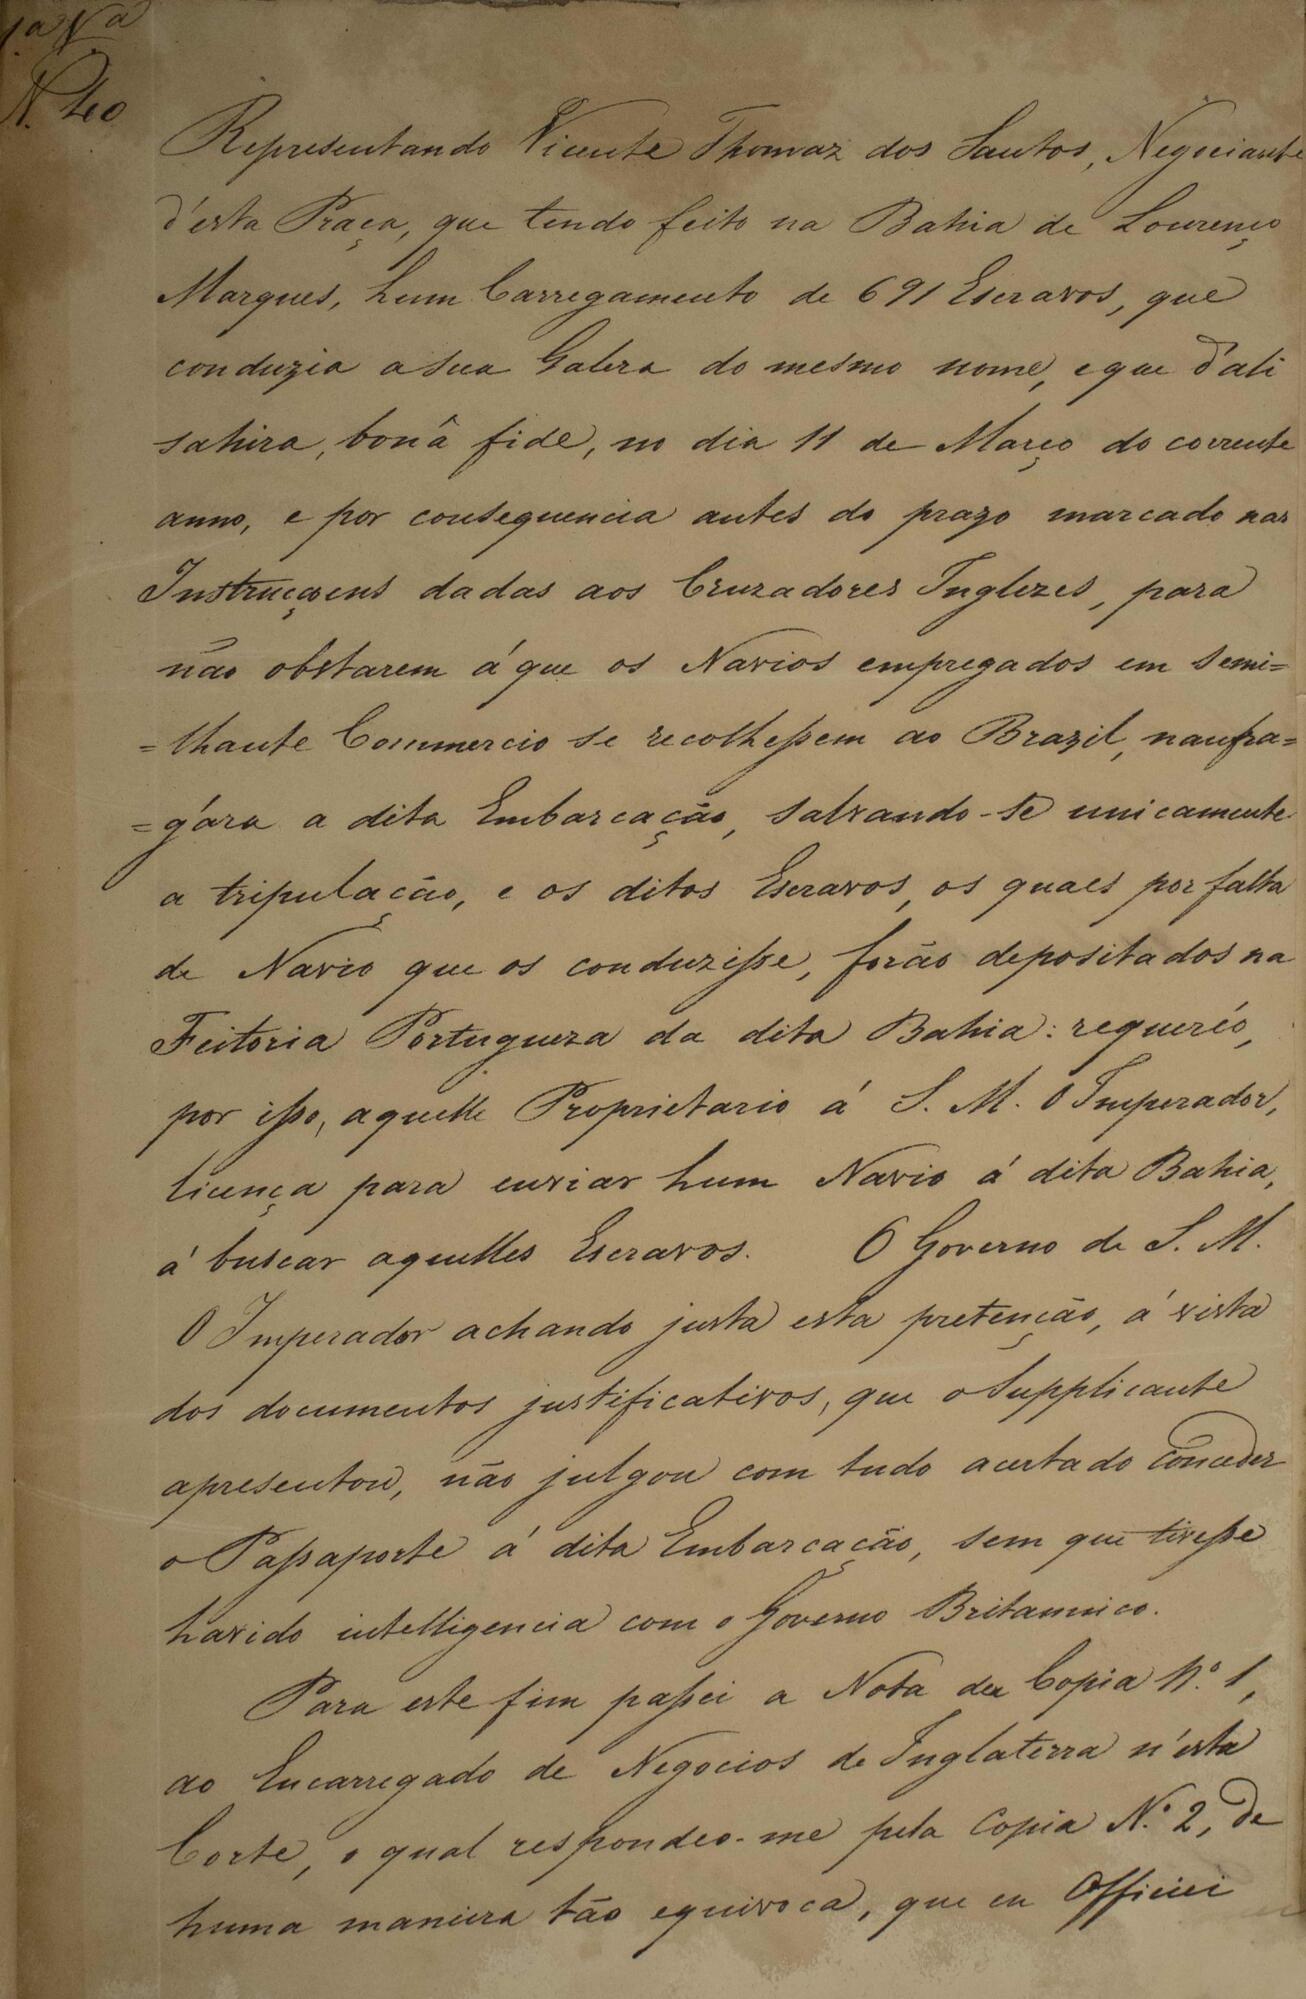 1ª Vª
N. 40
Representando Vicente Thomaz dos Santos, Negociante
d'esta Praça, que tendo feito na Bahia de Lourenço
Marques, hum Carregamento de 691 Escravos, que
conduzia a sua Galera do mesmo nome, e que d'ali
sahira, bonâ fide, no dia 11 de Março do corrente
anno, e por consequencia antes do prazo marcado nas
Instrucçoens dadas aos Cruzadores Inglezes, para
não obstarem á que os Navios empregados em semi=
=lhante Commercio se recolhessem ao Brazil, naufra=
=gára a dita Embarcação, salvando-se unicamente
a tripulação, e os ditos Escravos, os quaes por falta
de Navio que os conduzisse, forão depositados na
Feitoria Portugueza da dita Bahia: requerêo,
por isso, aquelle Proprietario á S. M. O Imperador,
licença para enviar hum Navio á dita Bahia,
á buscar aquelles Escravos. O Governo de S. M.
O Imperador achando justa esta pretenção, á vista
dos documentos justificativos, que o Supplicante
apresentou, não julgou com tudo acertado conceder
o Passaporte á dita Embarcação, sem que tivesse
havido intelligencia com o Governo Britannico.
Para este fim passei a Nota da Copia N.º 1,
ao Encarregado de Negocios de Inglaterra n'esta
Corte, o qual respondeo-me pela Copia N.º 2, de
huma maneira tão equivoca, que eu Officiei